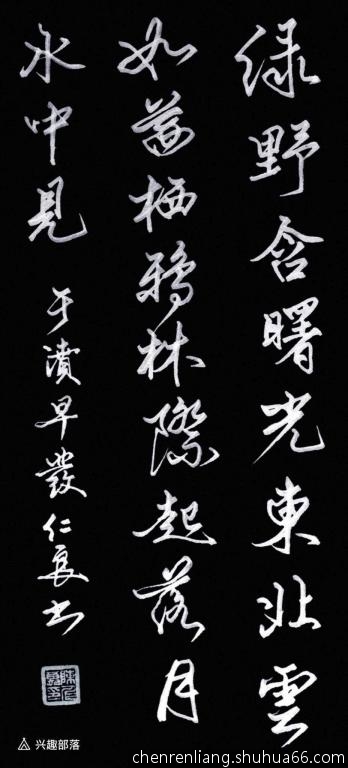 绿野含曙光東北雲
如茜栖鴉林際起落月
水中見
于濆早發仁良書
兴趣部落
chenrenliang.shuhua66.com